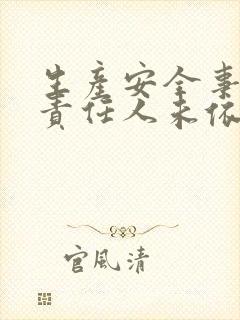 生產安全事
責任人未依
官風清